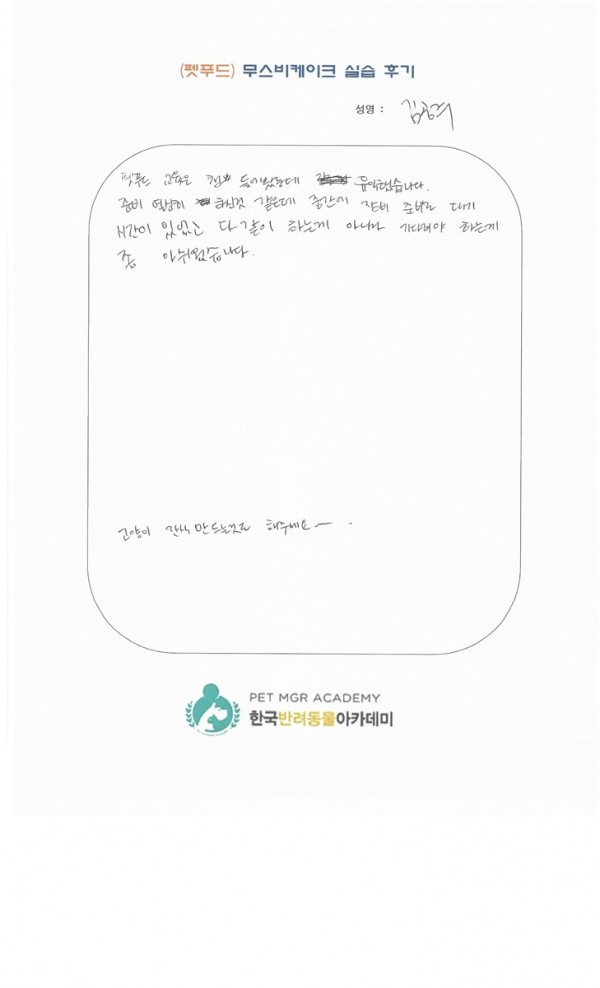 (펫푸드) 무스비케이크 실습 후기
성명 : 김
펫푸드 교육은 처음 들어봤는데 유익했습니다.
준비 열심히 하신것 같은데 중간에 장비 준비로 대기
시간이 있었고 다 같이 하는게 아니라 기다려야 하는게
좀 아쉬웠습니다.
고양이 간식 만드는것도 해주세요~
PET MGR ACADEMY
한국반려동물아카데미